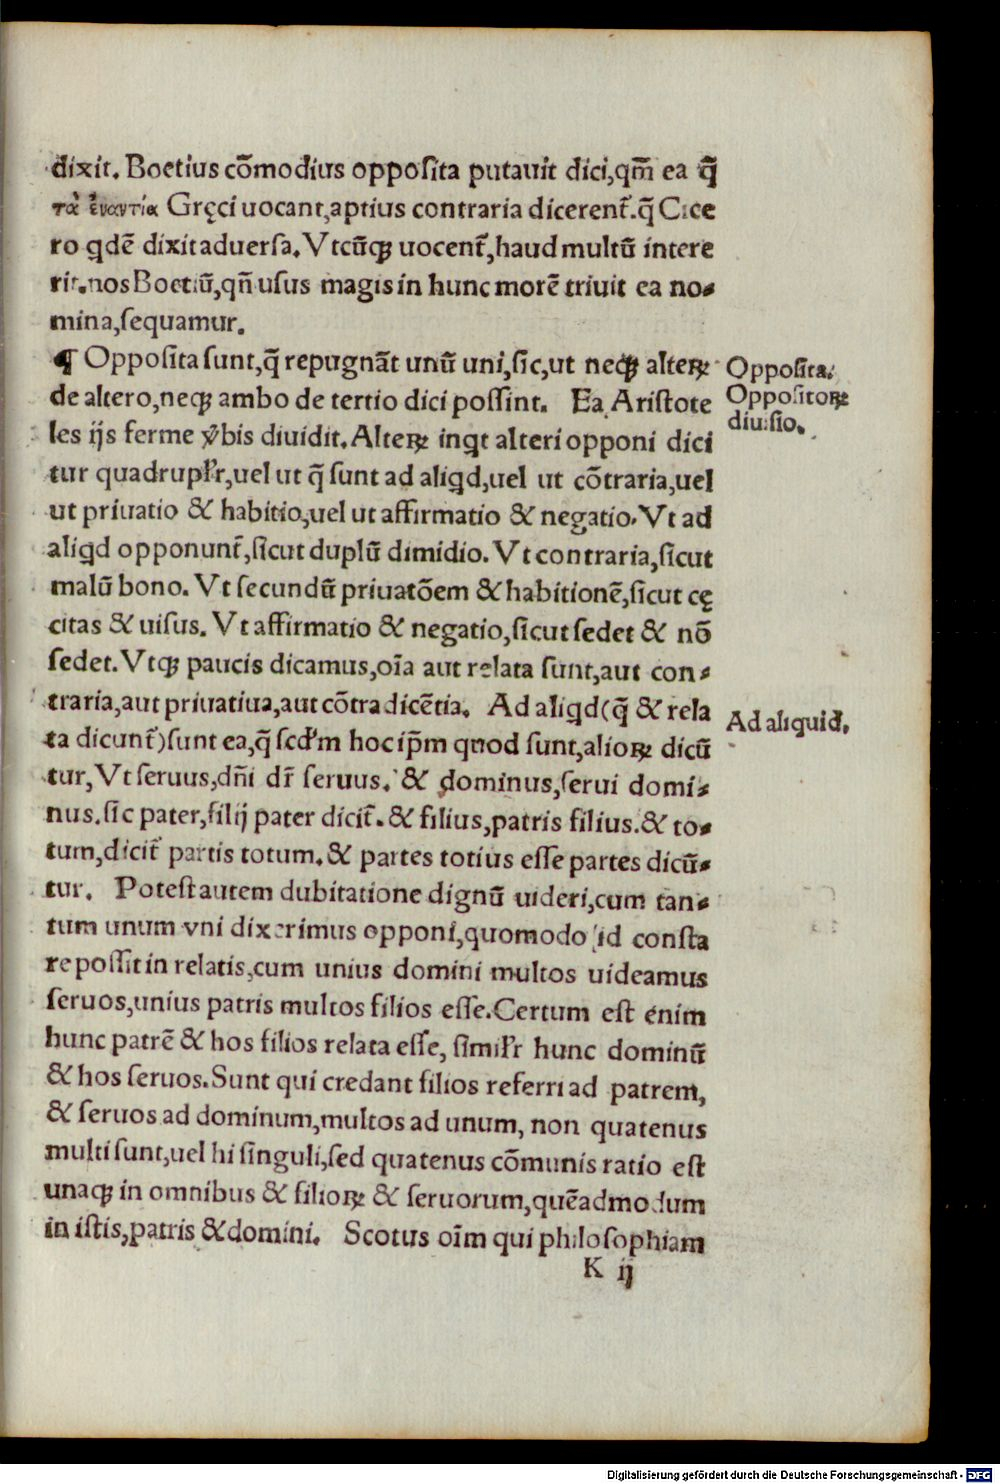 dixit. Boetius cõmodius opposita putauit dici,qm̃ ea q̃
τὰ ἐναντία Gręci uocant,aptius contraria dicerent᷑.q̃ Cice
ro qdẽ dixit aduersa. Vtcũqꝫ uocent᷑,haud multũ intere
rit.nos Boetiũ,qñ usus magis in hunc morẽ triuit ea no⸗
mina,sequamur.
¶ Opposita sunt,q̃ repugnãt unũ uni,sic,ut neqꝫ alteꝝ
de altero,neqꝫ ambo de tertio dici possint. Ea Aristote
les ijs ferme ꝟbis diuidit. Alteꝝ inqt alteri opponi dici
tur quadruplr̃,uel ut q̃ sunt ad aliqd,uel ut cõtraria,uel
ut priuatio & habitio,uel ut affirmatio & negatio. Vt ad
aliqd opponunt᷑,sicut duplũ dimidio. Vt contraria,sicut
malũ bono. Vt secundũ priuatõem & habitionẽ,sicut cę
citas & uisus. Vt affirmatio & negatio,sicut sedet & nõ
sedet. Vtqꝫ paucis dicamus,oĩa aut relata sunt,aut con⸗
traria,aut priuatiua,aut cõtradicẽtia. Ad aliqd(q̃ & rela
ta dicunt᷑)sunt ea,q̃ scd'm hoc ip̃m quod sunt,alioꝝ dicũ
tur, Vt seruus,dñi dr̃ seruus. & dominus,serui domi⸗
nus.sic pater,filij pater dicit᷑. & filius,patris filius.& to⸗
tum,dicit᷑ partis totum.& partes totius esse partes dicũ⸗
tur. Potest autem dubitatione dignũ uideri,cum tan⸗
tum unum vni dixerimus opponi,quomodo id consta
re possit in relatis,cum unius domini multos uideamus
seruos,unius patris multos filios esse.Certum est enim
hunc patrẽ & hos filios relata esse, similr̃ hunc dominũ
& hos seruos.Sunt qui credant filios referri ad patrem,
& seruos ad dominum,multos ad unum, non quatenus
multi sunt,uel hi singuli,sed quatenus cõmunis ratio est
unaqꝫ in omnibus & filioꝝ & seruorum,quẽadmodum
in istis,patris & domini. Scotus oĩm qui philosophiam
K ij
Opposita.
Oppositoꝝ
diuisio.
Ad aliquid.
Digitalisierung gefördert durch die Deutsche Forschungsgemeinschaft - DFG